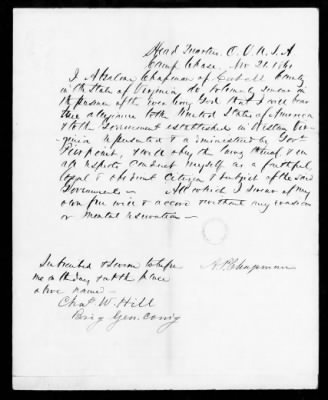 Head Quarters O. V. U. S. A.
Camp Chase, Nov 21. 1861
I Absalom Chapman of Cabell County
in the State of Virginia do solemnly swear in
the presence of the ever living God that I will bear
true allegiance to the United States of America
& to the Government established in Western Vir-
ginia represented & administered by Gov.
Pierpoint, & and by the laws thereof & in
all respects conduct myself as a faithful,
loyal & obedient Citizen & subject of the said
Governments — All which I swear of my
own free will & accord without any evasion
or mental reservation —
Subscribed & sworn to before
me on the day & at the place
above named —
A. P. Chapman
Chas. W. Hill
Brig Gen. Comg